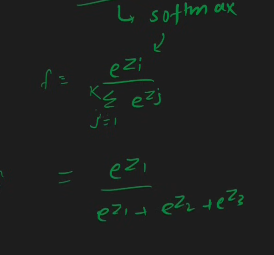 ↳ softmax
f = e^{z_i} / \sum_{j=1}^{K} e^{z_j}
= e^{z_1} / e^{z_1} + e^{z_2} + e^{z_3}